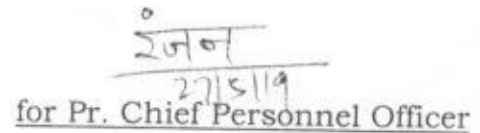 रंजन
27/5/19
for Pr. Chief Personnel Officer